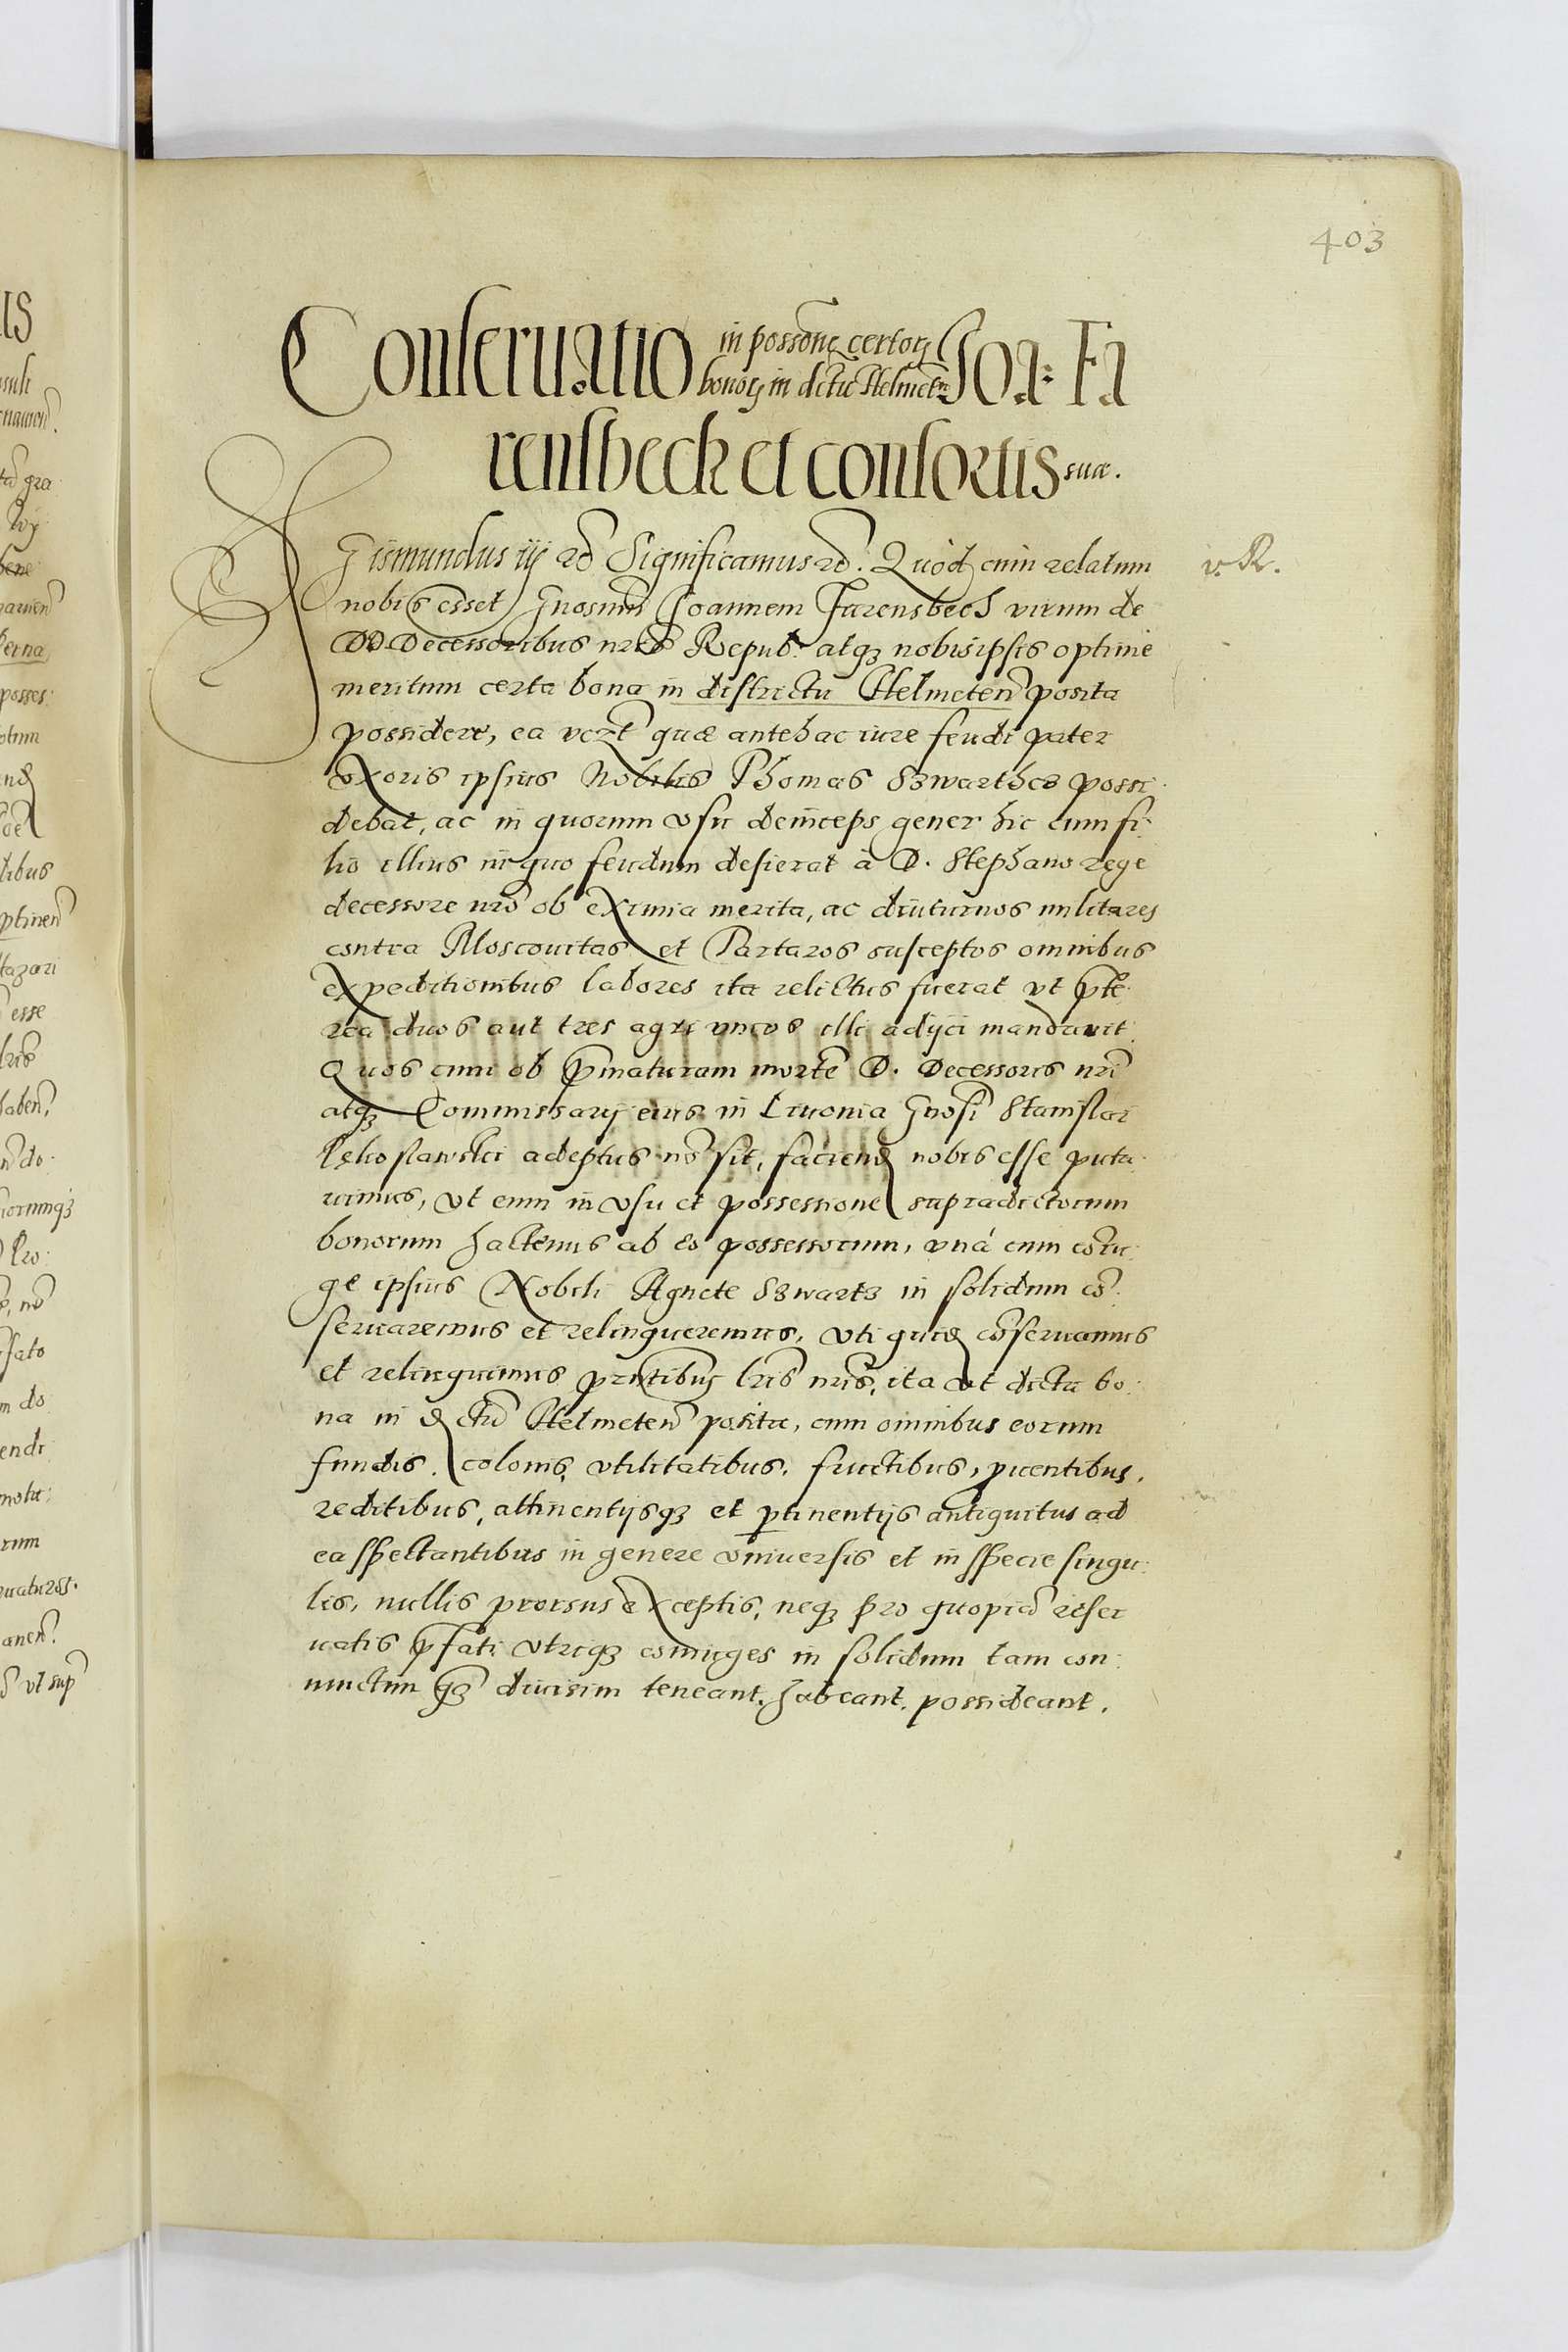 403
Conseruatio in possonē certorꝫ bonorꝫ in dctū Helmetēn Joa: Fa
rensbeck et consortis suæ.
Sigismundus iij ꝛc Significamus ꝛc. Quod cum relatum
v. R.
nobis esset Gnosum Joannem Farensbeck virum de
DD Decessoribus nris Repub. atqꝫ nobis ipsis optime
meritum certa bona in districtu Helmeten posita
possidere, ea vezt quæ antehac iure feudi pater
vxoris ipsius Nobilis Thomas Szwarthos possi
debat, ac in quorum vsu deinceps gener hic cum fi
lio illius in quo feudum desierat à D. Stephano rege
decessore nrō ob eximia merita, ac diuturnos militares
contra Moscouitas et Tartaros susceptos omnibus
expeditionibus labores ita relictus fuerat vt pte
rea duos aut tres agri vncos illi adijci mandauit
Quos cum ob pmaturam mortē D. Decessoris nrī
atqꝫ Commissarij eius in Liuonia Gnosi Stanislai
Pękoslawski adeptus nō sit, faciend nobis esse puta
uimus, vt eum in vsu et possessione supradictorum
bonorum hactenus ab eo possessorum, vnà cum coniu
ge ipsius Nobili Agnete Szwartz in solidum cō
seruaremus et relinqueremus, vti quid cōseruamus
et relinquimus pntibus lris nris, ita vt dicta bo
na in dctū Helmeten posita, cum omnibus eorum
fundis, colonis, vtilitatibus, fructibus, prouentibus,
reditibus, attinentijsqꝫ et ptinentijs antiquitus ad
ea spectantibus in genere vniuersis et in specie singu
lis, nullis prorsus exceptis, neqꝫ pro quopiā reser
uatis pfati vtriqꝫ coniuges in solidum tam con
iunctim qꝫ diuisim teneant, habeant, possideant.